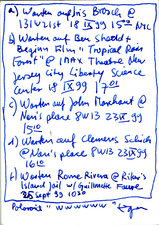 a) Warten auf Iris Brosch @
131 W 21st 18 IX 99 15 NYC
b) Warten auf Ben Shedd +
Beginn Film "Tropical Rain
Forest" @ IMAX Theatre New
Jersey City Liberty Science
Center 18 IX 99 17 01
c) Warten auf John Marchant @
Neni's place 8W13 23 IX 99
15 10
d) Warten auf Clemens Schick
@ Neni's place 8W13 23 IX 99
16 10
e) Warten Rome Rivera @ Riker's
Island Jail w/ Guillmette Faure
25 Sept 99 10 30
Polaroid "wwwwww"